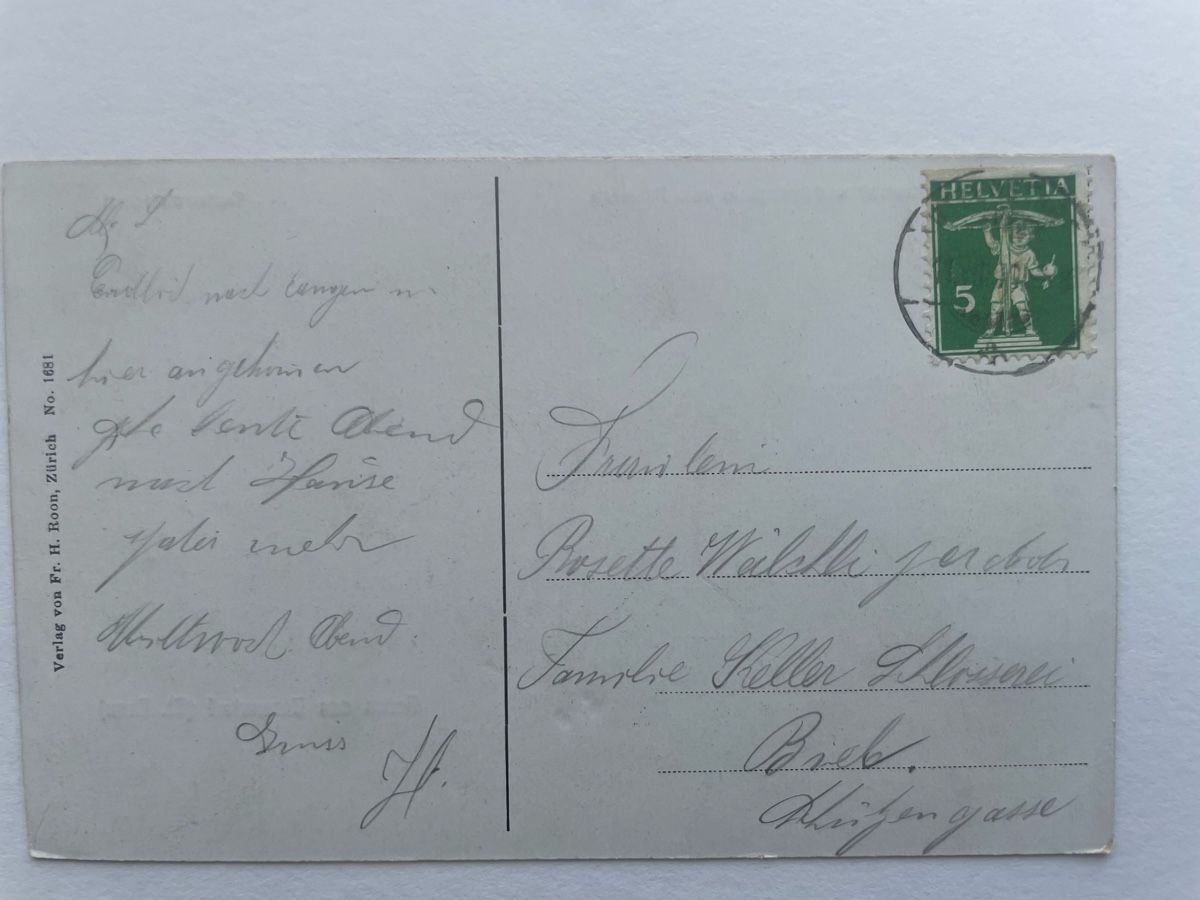 M. L
Endlich nach langen n.
hier angekommen
gehe heute Abend
nach Hause
später mehr
Mittwoch Abend.
Gruss
Verlag von Fr. H. Roon, Zürich No. 1681
HELVETIA
5
Fraulein
Rosette Wälchli
Familie Keller Schlosserei
Biel.
Schützengasse